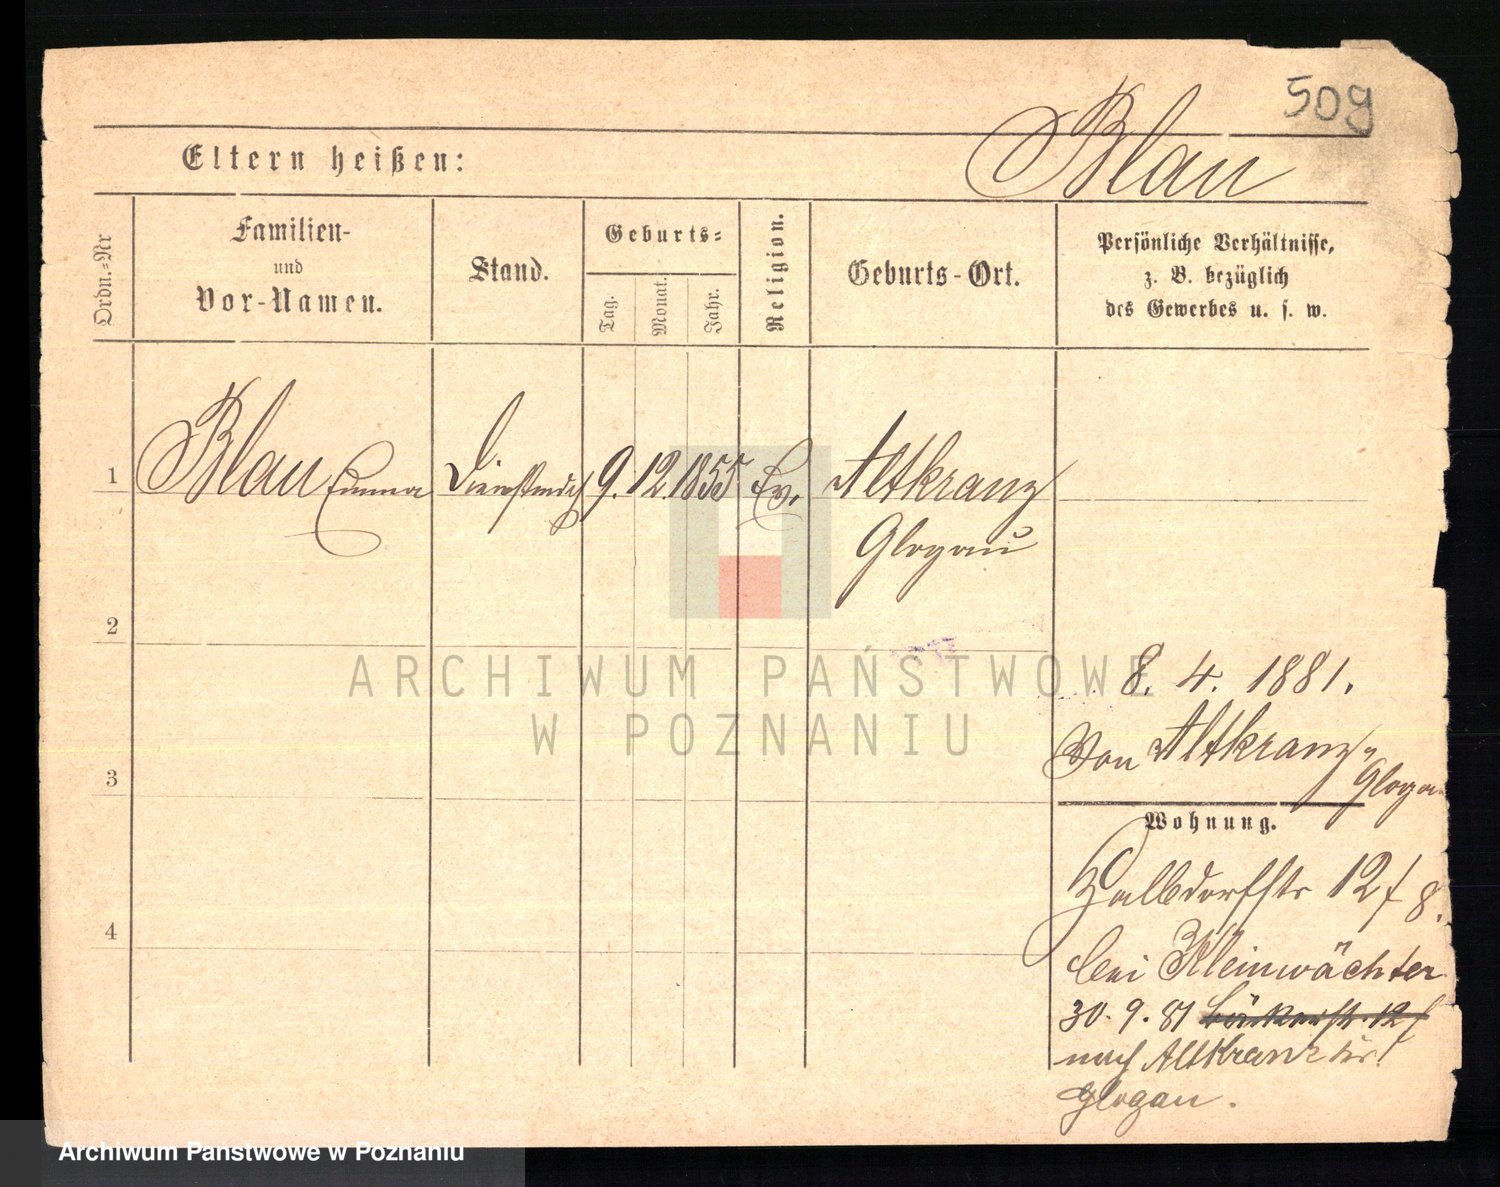 509
Blau
Eltern heißen:
Ordn.-Nr
Familien-
und
Vor-Namen.
Stand.
Geburts-
Tag.
Monat.
Jahr.
Religion.
Geburts-Ort.
Persönliche Verhältnisse,
z. B. bezüglich
des Gewerbes u. s. w.
1 Blau Emma Dienstmdch 9. 12. 1855 Ev. Altkranz
Glogau
2
8. 4. 1881.
Von Altkranz,
Glogau
3
Wohnung.
Halbdorfstr 12/8.
4
bei Kleinwächter
30. 9. 81 Bäckerstr. 12
nach Altkranz Kr.
Glogau.
ARCHIWUM PAŃSTWOWE
W POZNANIU
Archiwum Państwowe w Poznaniu